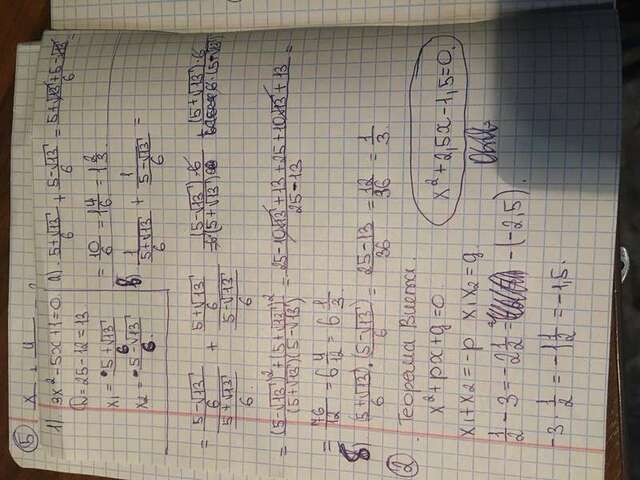 5
1) 3x² - 5x + 1 = 0.
D = 25 - 12 = 13
x₁ = (5 + √13)/6
x₂ = (5 - √13)/6.
а). (5 + √13)/6 + (5 - √13)/6 = (5 + √13 + 5 - √13)/6 =
= 10/6 = 1 4/6 = 1 2/3.
в) 1/((5 + √13)/6) + 1/((5 - √13)/6) =
= ((5 - √13)/6)/((5 + √13)/6) + ((5 + √13)/6)/((5 - √13)/6)
= (5 - √13)² + (5 + √13)²/(5 + √13)(5 - √13) = (25 - 10√13 + 13 + 25 + 10√13 + 13)/(25 - 13) =
= 76/12 = 6 4/12 = 6 1/3.
б) (5 + √13)/6 · (5 - √13)/6 = (25 - 13)/36 = 12/36 = 1/3.
2 Теорема Виета.
x² + px + q = 0.
x₁ + x₂ = -p x₁x₂ = q.
x² + 2,5x - 1,5 = 0.
1/2 - 3 = -2 1/2 = -(-2,5).
-3 · 1/2 = -1 1/2 = -1,5.